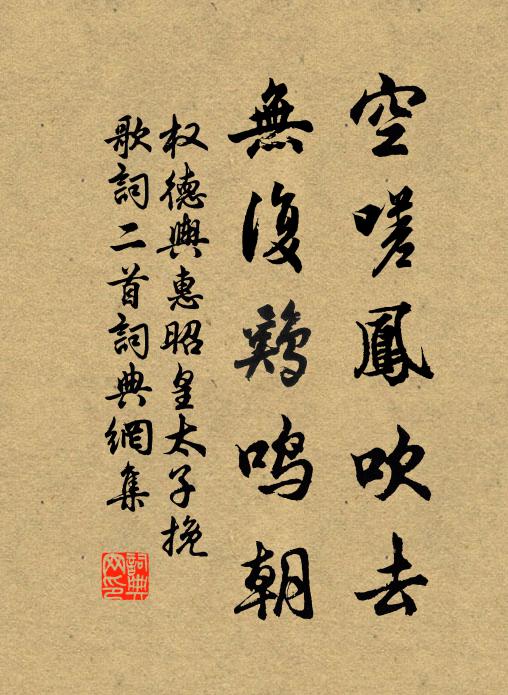 空嗟鳳吹去
無復鷄鳴朝
权德輿惠昭皇太子挽
歌詞二首詞典網集
詞典
网印